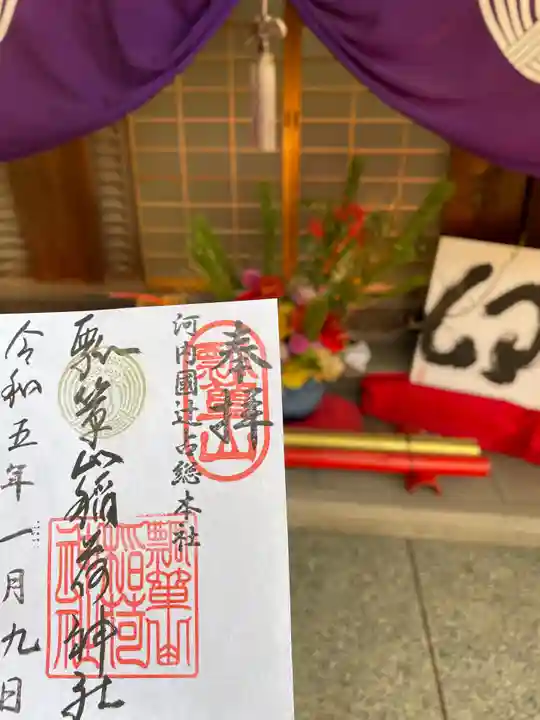 奉拝
河内國辻占総本社
瓢箪山稲荷神社
令和五年一月九日
瓢箪山
瓢箪山
稲荷